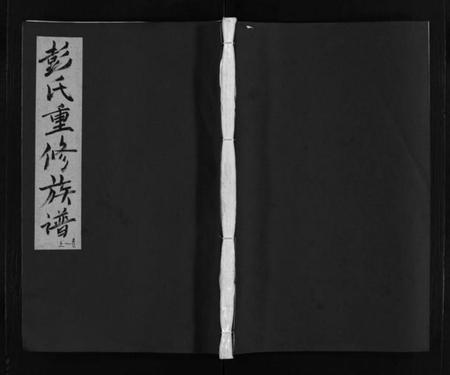 彭氏重修族谱